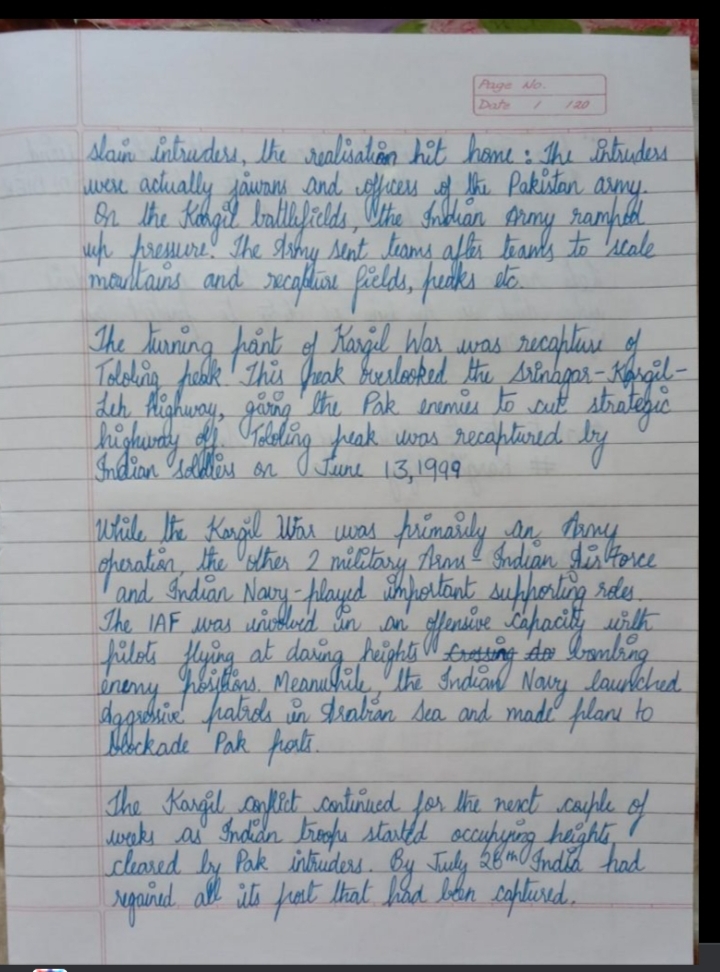 Page No.
Date / /20
slain intruders, the realisation hit home : The intruders
were actually jawans and officers of the Pakistan army.
On the Kargil battlefields, the Indian Army ramped
up pressure. The Army sent teams after teams to scale
mountains and recapture fields, peaks etc.
The turning point of Kargil War was recapture of
Tololing peak. This peak overlooked the Srinagar-Kargil-
Leh Highway, giving the Pak enemies to cut strategic
highway off. Tololing peak was recaptured by
Indian soldiers on June 13,1999
While the Kargil War was primarily an Army
operation, the other 2 military Arms - Indian Air Force
and Indian Navy - played important supporting roles.
The IAF was involved in an offensive capacity with
pilots flying at daring heights crossing do bombing
enemy positions. Meanwhile, the Indian Navy launched
aggressive patrols in Arabian Sea and made plans to
blockade Pak ports.
The Kargil conflict continued for the next couple of
weeks as Indian troops started occupying heights
cleared by Pak intruders. By July 26th India had
regained all its post that had been captured.